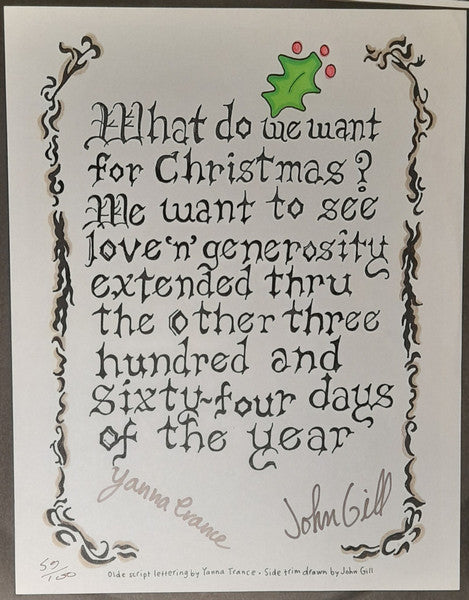 What do we want
for Christmas?
We want to see
love 'n' generosity
extended thru
the other three
hundred and
sixty-four days
of the year
Yanna Trance
John Gill
59/100
Olde script lettering by Yanna Trance • Side trim drawn by John Gill